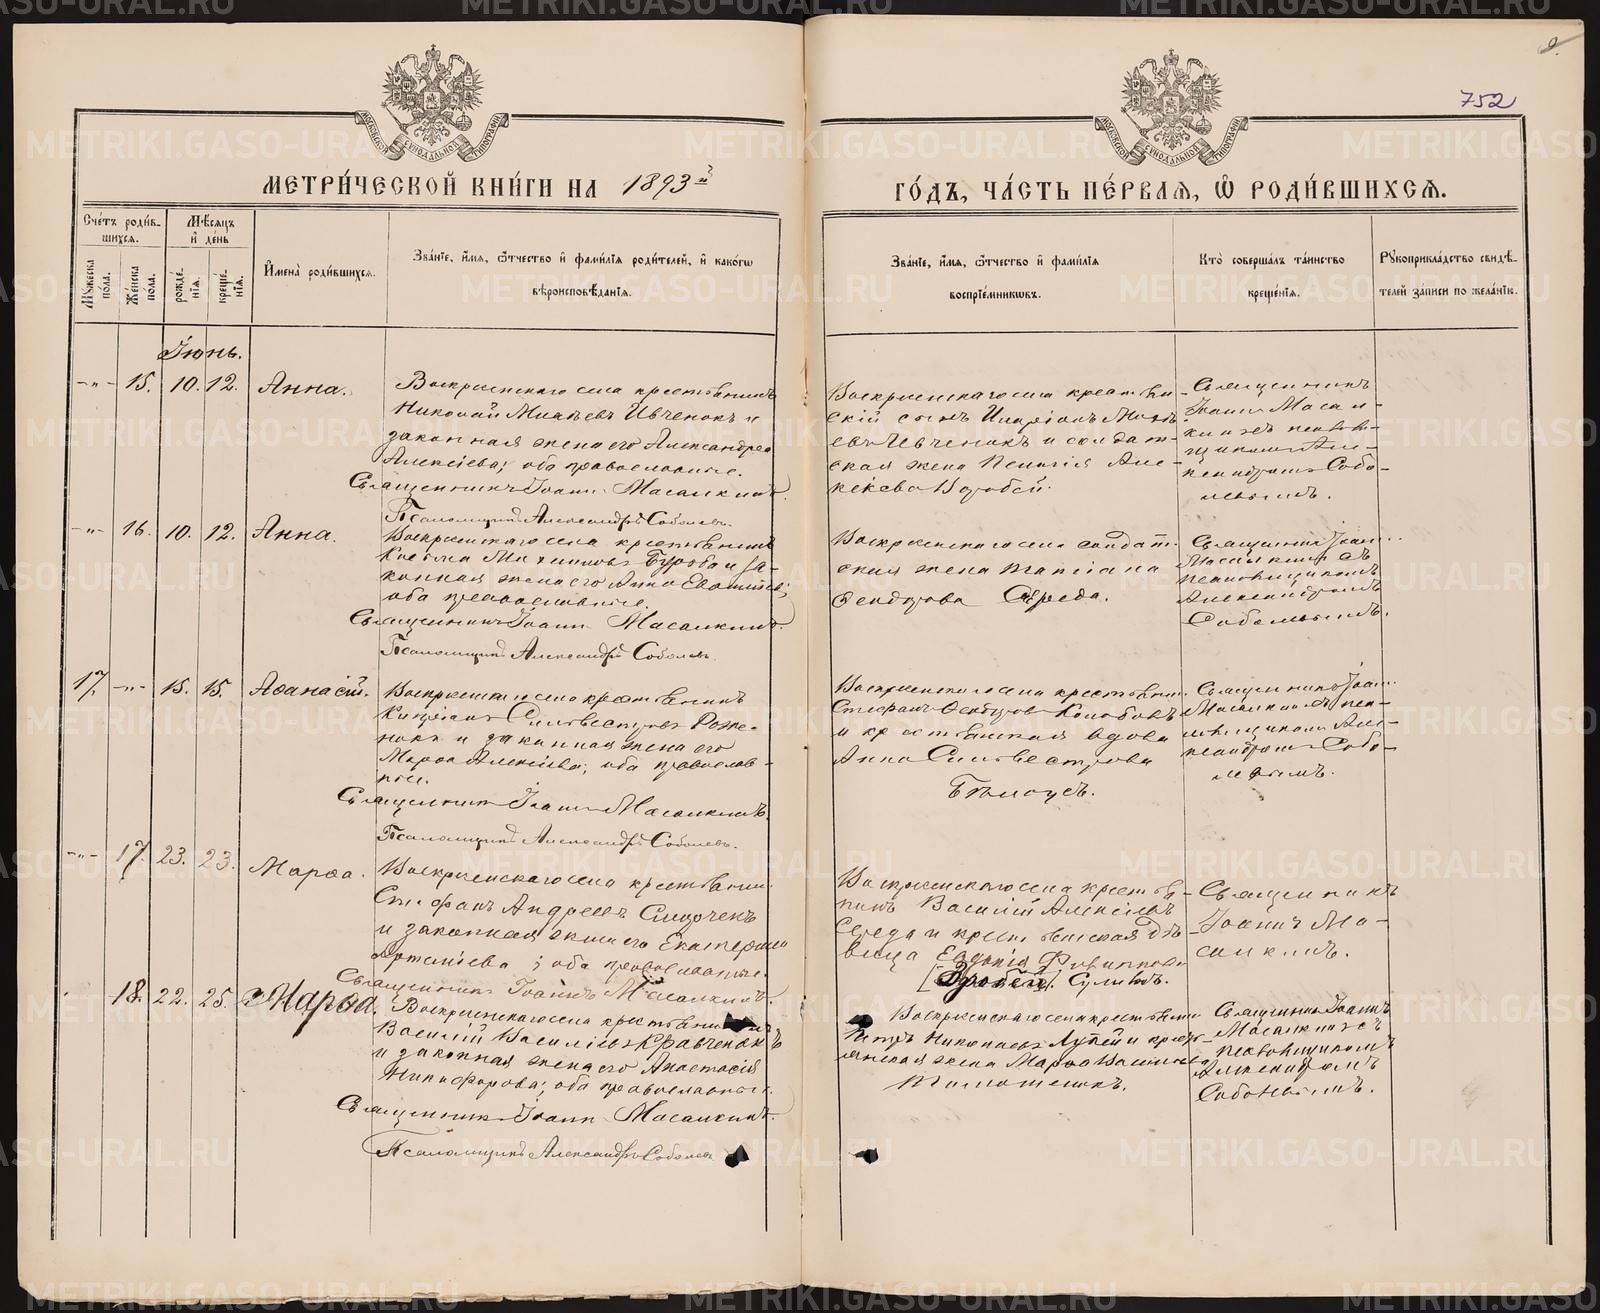 752
МОСКОВСКОЙ СУНОДАЛЬНОЙ ТИПОГРАФІИ
МОСКОВСКОЙ СУНОДАЛЬНОЙ ТИПОГРАФІИ
МЕТРИ́ЧЕСКОЙ КНИ́ГИ НА 1893й
ГО́ДЪ, ЧА́СТЬ ПЕ́РВАѦ, Ѿ РОДИ́ВШИХСѦ.
Сче́тъ роди́в-
шихсѧ.
Мѣ́сѧцъ
и҆ де́нь
Мꙋжеска по́ла.
Же́нска по́ла.
рожде́-
нїѧ.
креще́-
нїѧ.
И҆мена̀ роди́вшихсѧ.
Зва́нїе, и҆́мѧ, ѻ҆́тчество и҆ фами́лїѧ роди́телей, и҆ како́гѡ
вѣроисповѣ́данїѧ.
Зва́нїе, и҆́мѧ, ѻ҆́тчество и҆ фами́лїѧ
воспрїе́мникѡвъ.
Кто̀ соверша́лъ та́инство
креще́нїѧ.
Рꙋкоприкла́дство свидѣ́-
телей за́писи по жела́нїю.
Іюнь.
-"- 15. 10. 12. Анна.
Воскресенскаго села крестьянинъ
Николай Михѣевъ Ивченокъ и
законная жена его Александра
Алексіева; оба православные.
Священникъ Іоаннъ Масалкинъ.
Псаломщикъ Александръ Соболевъ.
Воскресенскаго села крестьян-
скій сынъ Михѣ-
евъ Ивченокъ и солдат-
ская жена Пелагія Але-
ксѣева
Священникъ
Іоаннъ Масал-
кинъ съ псалом-
щикомъ Але-
ксандромъ Собо-
левымъ.
-"- 16. 10. 12. Анна.
Воскресенскаго села крестьянинъ
Косьма и за-
конная жена его Анна
оба православные.
Священникъ Іоаннъ Масалкинъ.
Псаломщикъ Александръ Соболевъ.
Воскресенскаго села солдат-
ская жена Татіана
Ѳеодорова Середа.
Священникъ Іоаннъ
Масалкинъ съ
псаломщикомъ
Александромъ
Соболевымъ.
17. -"- 15. 15. Аѳанасій.
Воскресенскаго села крестьянинъ
Сильвестровъ
и законная жена его
Марѳа Алексіева; оба православ-
ные.
Священникъ Іоаннъ Масалкинъ.
Псаломщикъ Александръ Соболевъ.
Воскресенскаго села крестьянинъ
Стефанъ Ѳеодоровъ
и крестьянская вдова
Анна Сильвестрова
Бѣлоусъ.
Священникъ Іоаннъ
Масалкинъ съ пса-
ломщикомъ Але-
ксандромъ Собо-
левымъ.
-"- 17. 23. 23. Марѳа.
Воскресенскаго села крестьянинъ
Стефанъ Андреевъ
и законная жена его Екатерина
оба православные.
Священникъ Іоаннъ Масалкинъ.
Воскресенскаго села крестья-
нинъ Василій Алексіевъ
Середа и крестьянская дѣ-
вица Евдокія Филиппова
Сулимъ.
Священникъ
Іоаннъ Ма-
салкинъ.
18. 22. 25. Марѳа.
Воскресенскаго села крестьянинъ
Василій Василіевъ Кравченокъ
и законная жена его Анастасія
Никифорова; оба православные.
Священникъ Іоаннъ Масалкинъ.
Псаломщикъ Александръ Соболевъ
Воскресенскаго села крестьянинъ
Петръ Николаевъ Лупей и кресть-
янская жена Марѳа Василіева
Священникъ Іоаннъ
Масалкинъ съ
псаломщикомъ
Александромъ
Соболевымъ.
METRIKI.GASO-URAL.RU